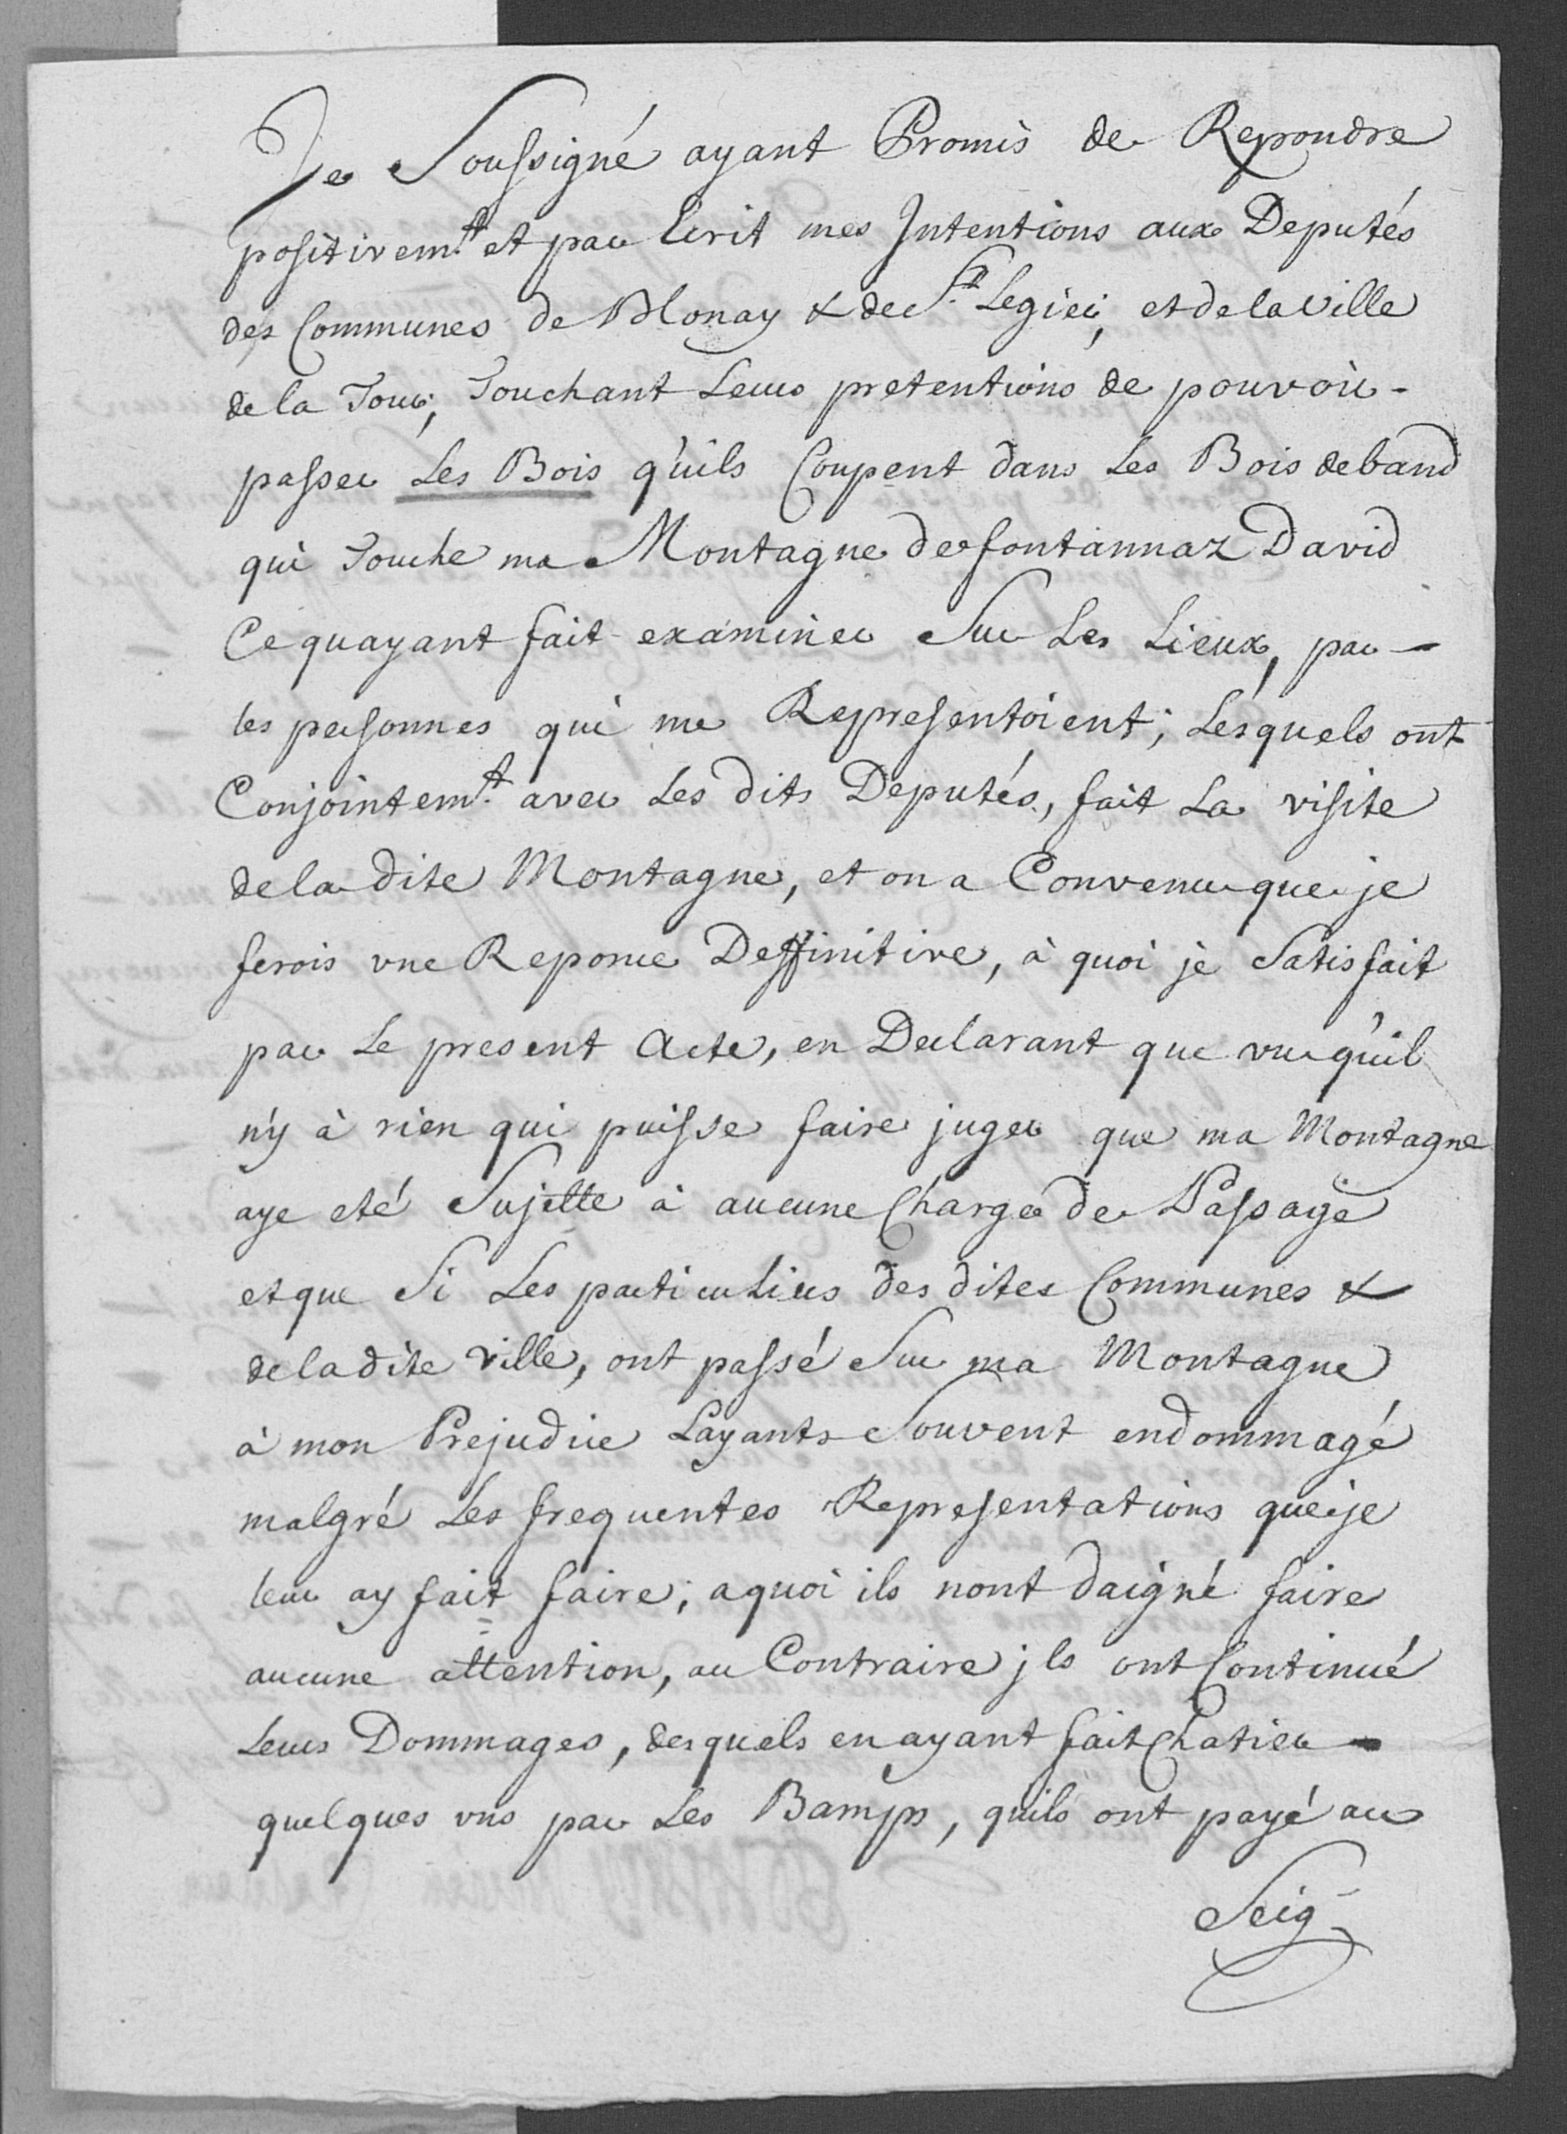 Je Soussigné ayant Promis de Repondre
positivem.t et par Ecrit mes Intentions aux Deputés
des Communes de Blonay & de S.t Legier, et de la ville
de la Tour, Touchant Leurs pretentions de pouvoir -
passer Les Bois qu'ils Coupent dans Les Bois de band
qui Touche ma Montagne de fontannaz David
Ce quayant fait examiner Sur Les Lieux, par -
les personnes qui me Representoient; Lesquels ont
Conjointem.t avec Les dits Deputés, fait La visite
de la dite Montagne, et on a Convenu que je
ferois vne Reponce Deffinitive, à quoi je Satisfait
par Le present Acte, en Declarant que vu qu'il
n'y à rien qui puisse faire juger que ma Montagne
aye eté Sujette à aucune Charge de Passage
et que Si Les particuliers des dites Communes &
de la dite ville, ont passé Sur ma Montagne
à mon Prejudice Layants Souvent endommagé
malgré Les frequentes Representations que je
leur ay fait faire; aquoi ils nont daigné faire
aucune attention, au Contraire jls ont Continué
Leurs Dommages, desquels en ayant fait Chatier -
quelques vns par Les Bamps, quils ont payé au
Seig-